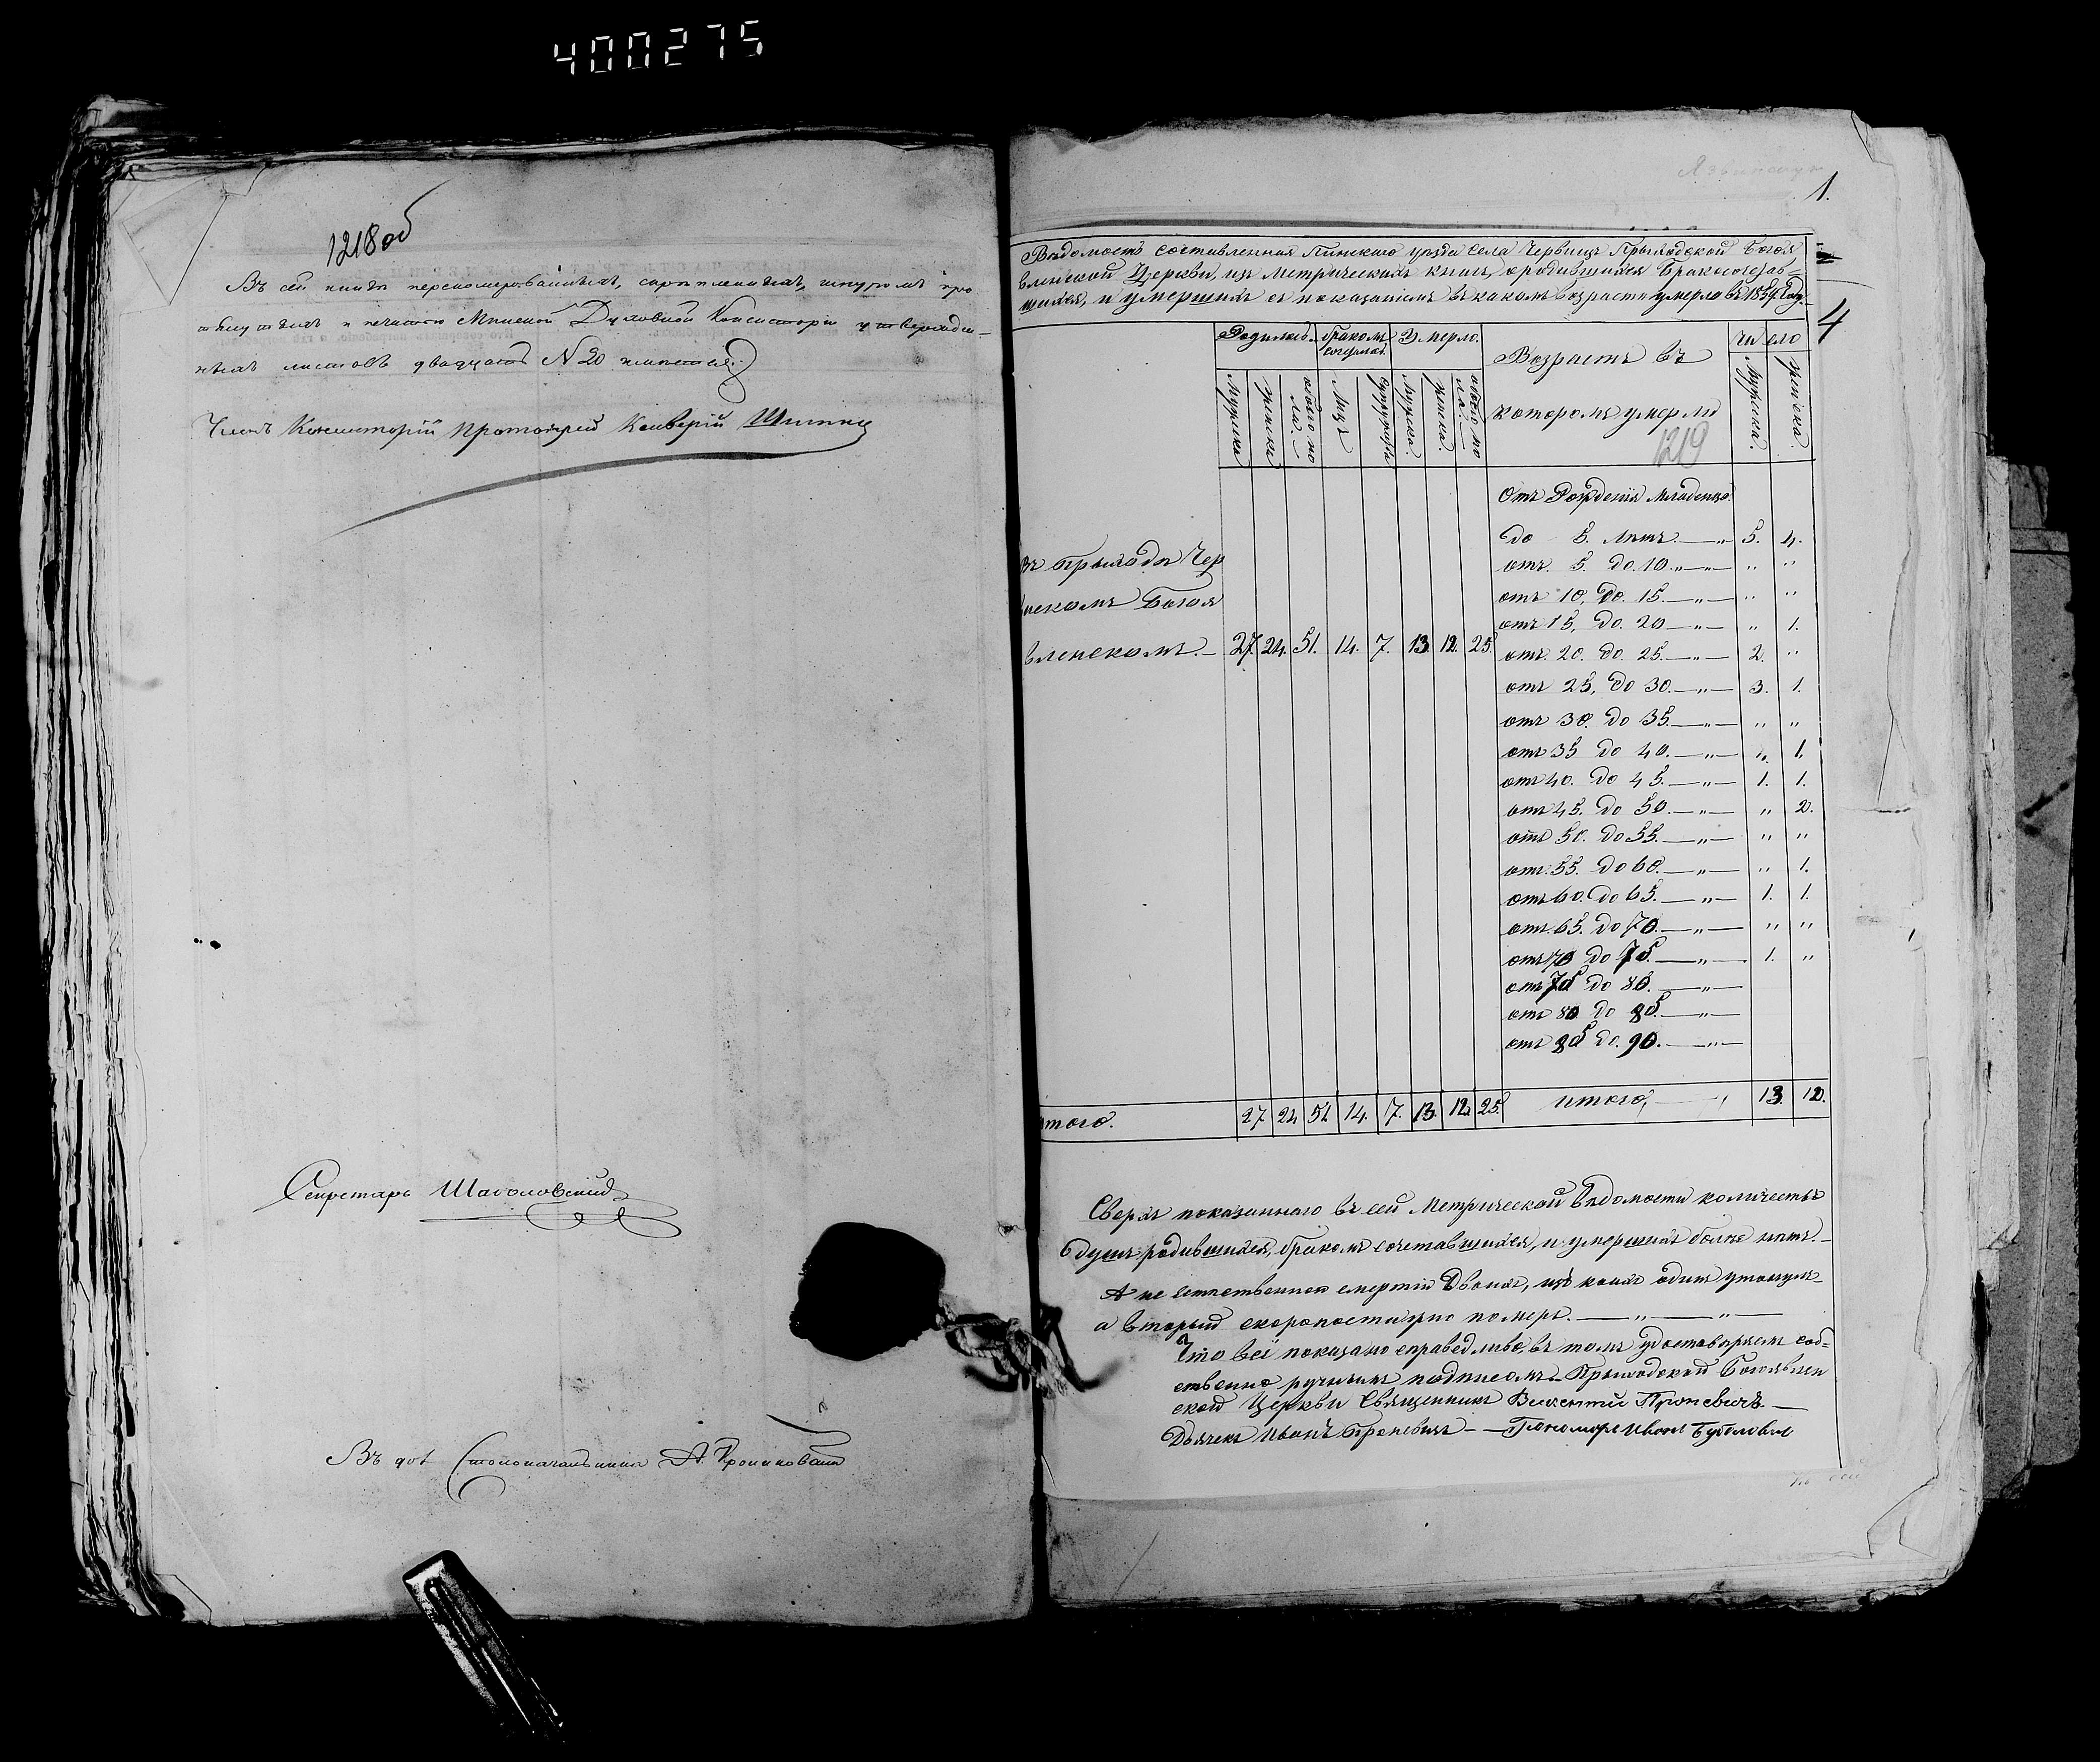 400275
1218 об
Въ сей книгѣ перенумерованныхъ, скрѣпленныхъ, шнуромъ про
и печатью Минской Духовной Консисторіи утвержден-
ныхъ листовъ двадцать N 20 имѣется.
Членъ Консисторіи Протоіерей
Секретарь
Въ дол. Столоначальника А.
1.
4
Вѣдомость составленная Пинскаго уѣзда Села Червищъ Прыходской Богоя
вленской Церкви, изъ Метрическихъ книгъ, о родившихся Бракосочетав-
шихся, и умершихъ съ показаніемъ въ какомъ возрастѣ умерло въ 1859. Году.
Родилось. бракомъ сочеталось. Умерло. Возрастъ въ которомъ умерли Число
Мужска женска обоего по ла. Лицъ Супружествъ Мужска. женска. обоего по ла. Мужска. женска.
1219
Отъ Рожденія младенца
до 5. лѣтъ. — „ 5. 4.
отъ 5. до 10. „ — „ „ „
отъ 10. до. 15. — „ — „ „
отъ 15. до. 20 — „ — „ 1.
отъ 20. до. 25. — „ — 2. „
отъ 25. до 30. — „ — 3. 1.
отъ 30. до 35. — „ — „ „
отъ 35 до 40. — „ — „ 1.
отъ 40. до 45. — „ — 1. 1.
отъ 45. до 50. — „ — „ 2.
отъ 50. до 55. — „ — „ „
отъ 55. до 60. — „ — „ 1.
отъ 60. до 65. — „ — 1. 1.
отъ 65. до 70. — „ — „ „
отъ 70 до 75. — „ — 1. „
отъ 75 до 80. — „ —
отъ 80 до 85. — „ —
отъ 85 до. 90. — „ —
въ прыходѣ Чер
нскомъ Богоя
вленскомъ. — 27. 24. 51. 14. 7. 13 12. 25.
итого. 27 24 51 14. 7. 13. 12. 25. итого, — „ 13. 12.
Сверхъ показаннаго въ сей Метрической вѣдомости количества
душъ родившихся, бракомъ сочетавшихся, и умершихъ болѣе нѣтъ. —
А не естественною смертію Двоихъ, изъ коихъ одинъ утонулъ —
а вторый скоропостижно померъ. — „ — „ —
Что всё показано справедливо, въ томъ удостоверяемъ соб-
ственно ручнымъ подписомъ. Прыходской Богоявлен
ской Церкви Священникъ Викентій —
Дьячекъ Иванъ — — Пономарь Иванъ